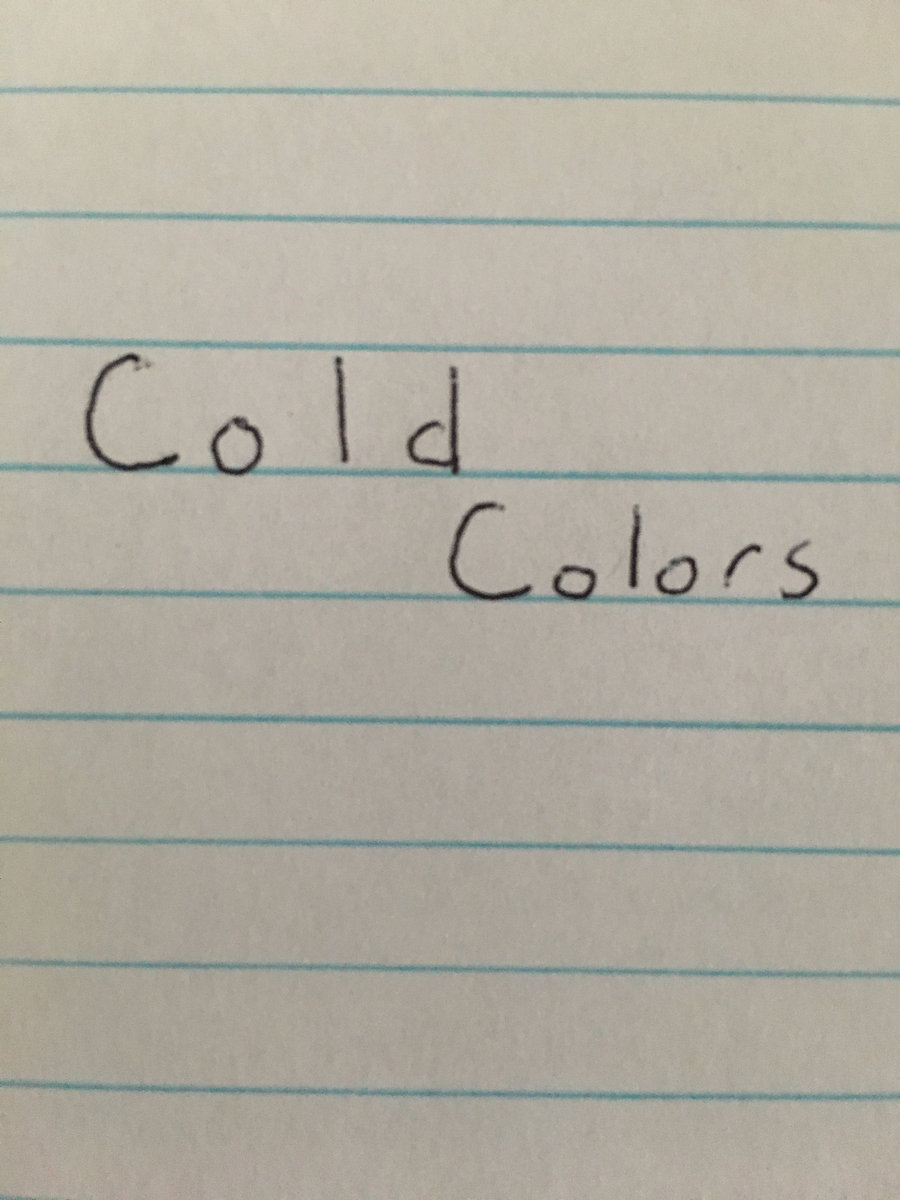 Cold
Colors